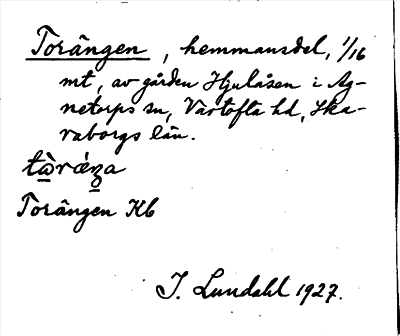 Torängen, hemmansdel, 1/16
mt, av gården Hjulåsen i Ag-
netorps sn, Vartofta hd, Ska-
raborgs län.
tòràŋa
Torängen Kb
I. Lundahl 1927.